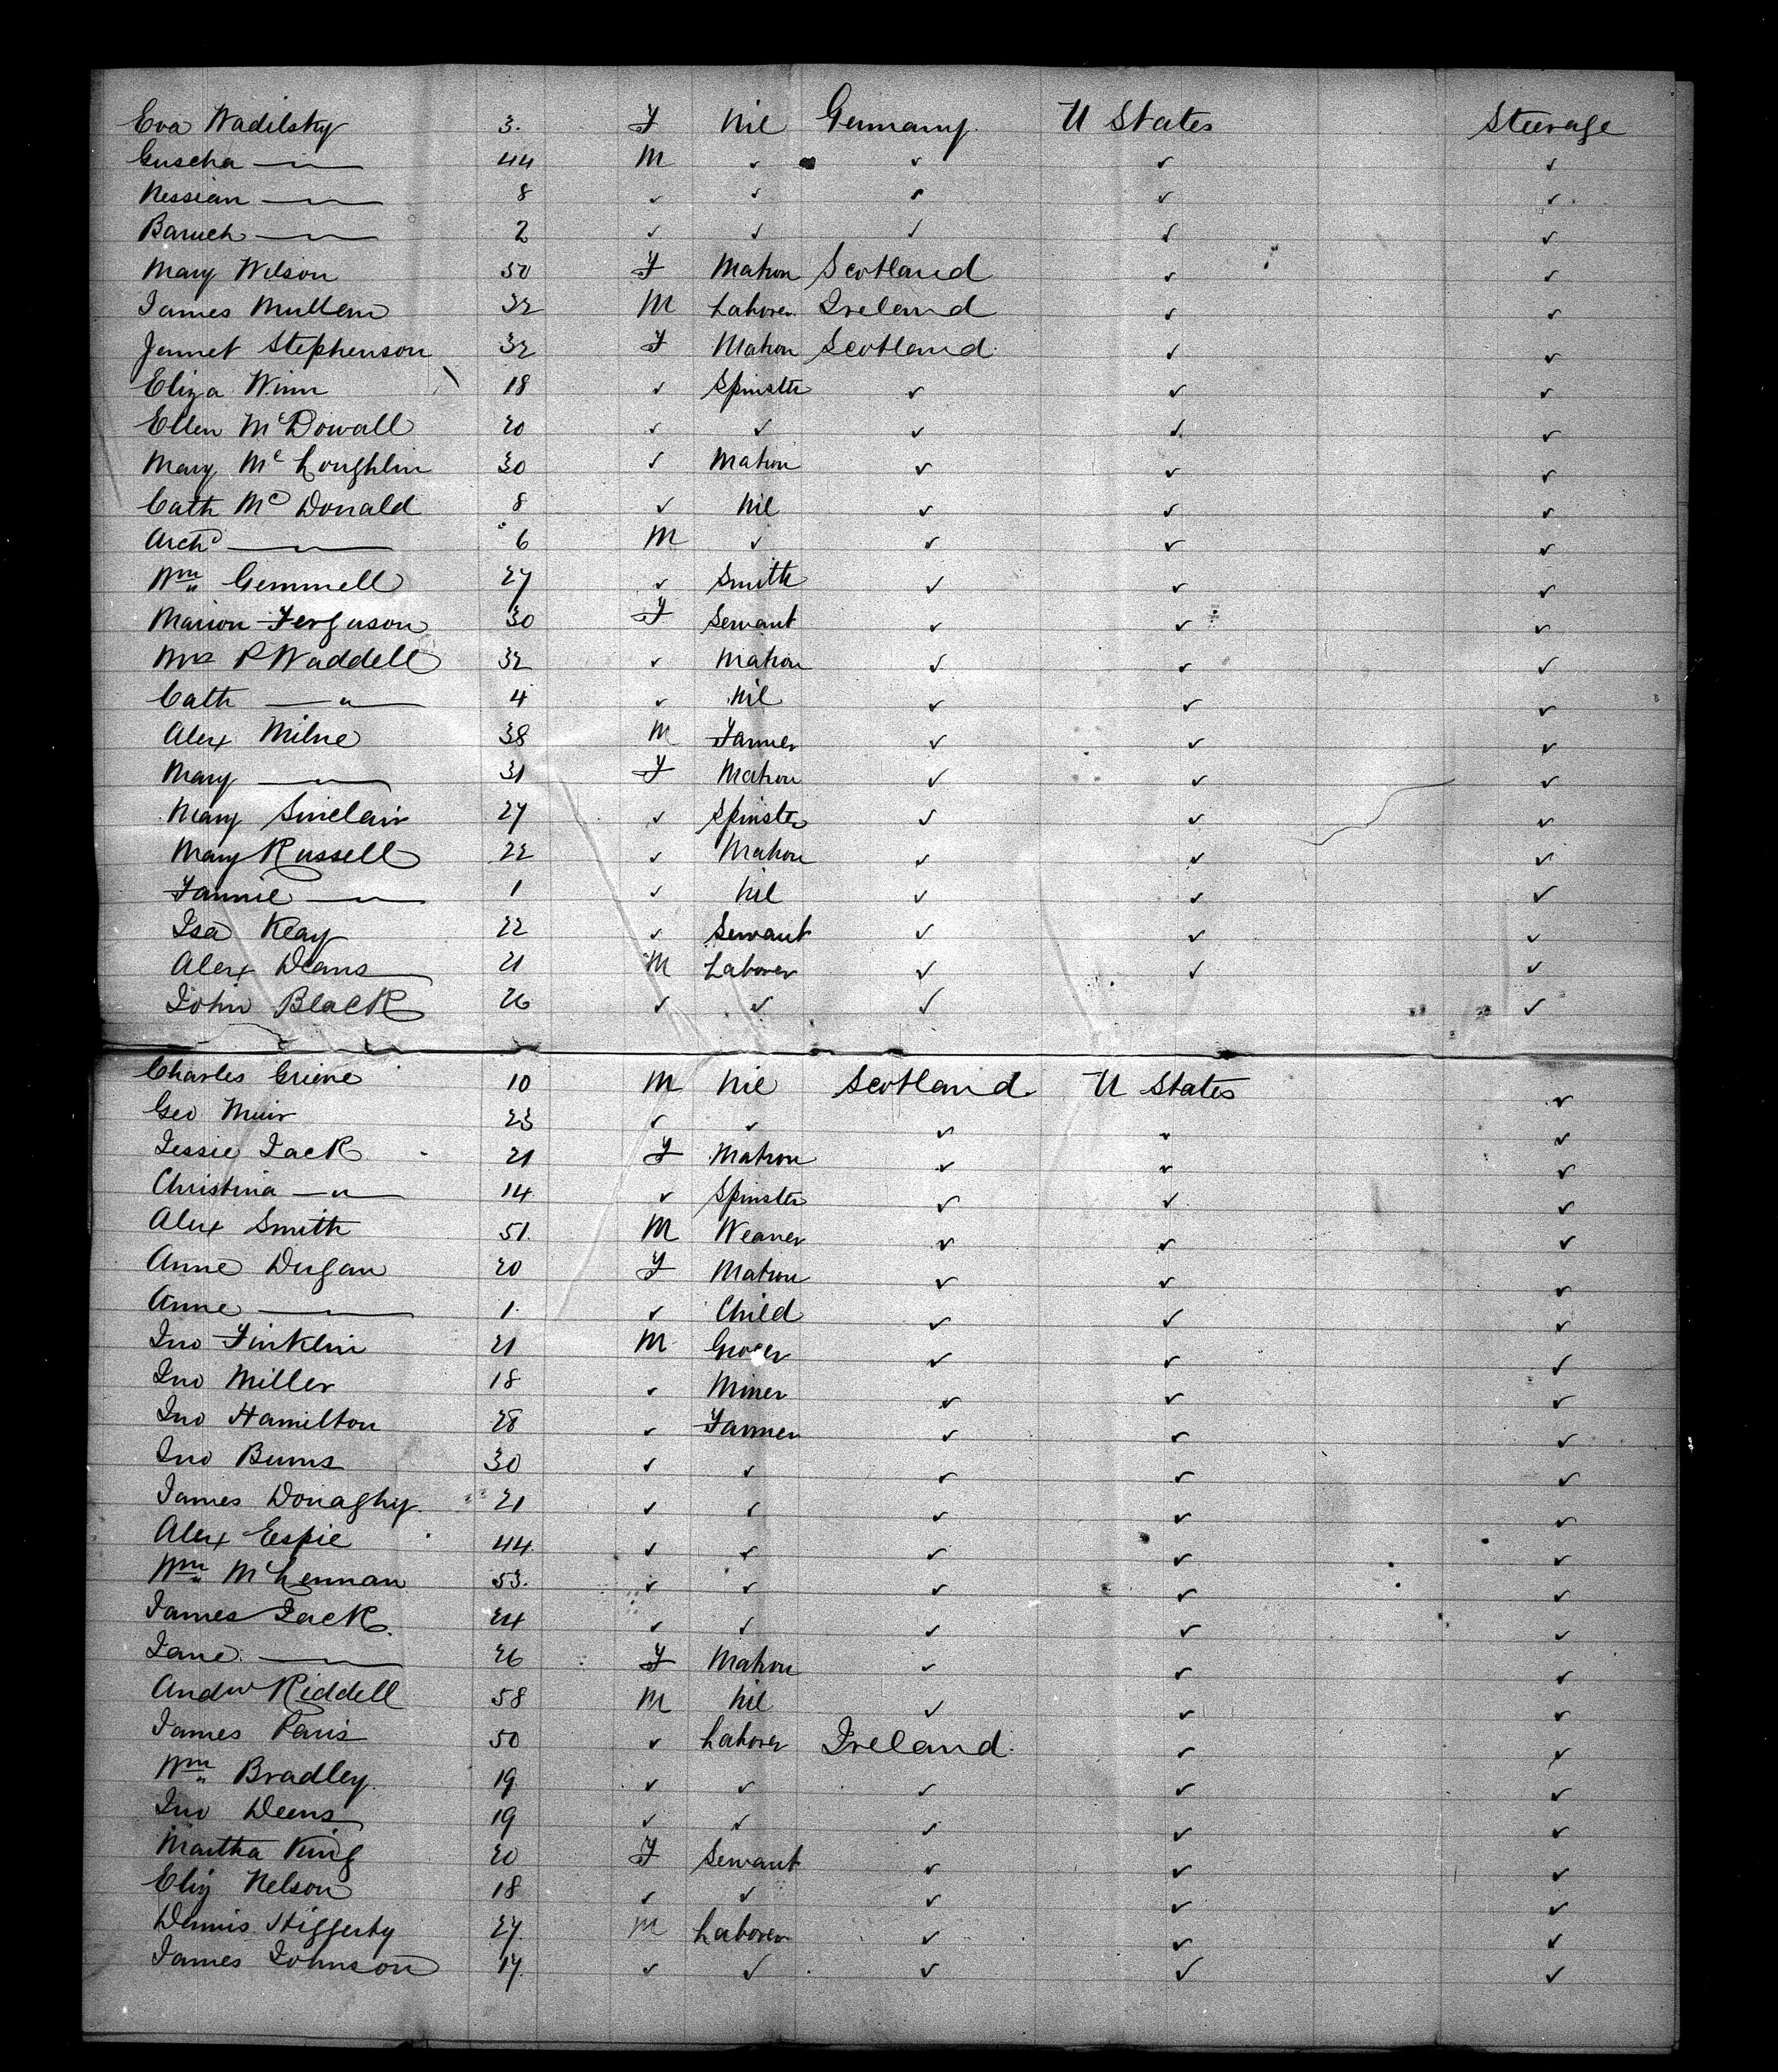 Eva Wadilsky 3. F Nil Germany. U States Steerage
Guscha —"— 44 M ✓ ✓ ✓ ✓
Nessian —"— 8 ✓ ✓ ✓ ✓ ✓
Baruch —"— 2 ✓ ✓ ✓ ✓ ✓
Mary Wilson 50 F Matron Scotland ✓ ✓
James Mullen 32 M Laborer Ireland ✓ ✓
Jennet Stephenson 32 F Matron Scotland ✓ ✓
Eliza Winn 18 ✓ Spinster ✓ ✓ ✓
Ellen McDowall 20 ✓ ✓ ✓ ✓ ✓
Mary Mc Loughlin 30 ✓ Matron ✓ ✓ ✓
Cath Mc Donald 8 ✓ Nil ✓ ✓ ✓
Archd —"— 6 M ✓ ✓ ✓ ✓
Wm Gemmell 27 ✓ Smith ✓ ✓ ✓
Marion Ferguson 30 F Servant ✓ ✓ ✓
Mrs P Waddell 32 ✓ Matron ✓ ✓ ✓
Cath —"— 4 ✓ Nil ✓ ✓ ✓
Alex Milne 38 M Farmer ✓ ✓ ✓
Mary —"— 31 F Matron ✓ ✓ ✓
Mary Sinclair 27 ✓ Spinster ✓ ✓ ✓
Mary Russell 22 ✓ Matron ✓ ✓ ✓
Fannie —"— 1 ✓ Nil ✓ ✓ ✓
Isa Keay 22 ✓ Servant ✓ ✓ ✓
Alex Deans 21 M Laborer ✓ ✓ ✓
John Black 26 ✓ ✓ ✓ ✓
Charles Grieve 10 M Nil Scotland U States ✓
Geo Muir 23 ✓ ✓ ✓ ✓ ✓
Jessie Jack 21 F Matron ✓ ✓ ✓
Christina —"— 14 ✓ Spinster ✓ ✓ ✓
Alex Smith 51. M Weaver ✓ ✓ ✓
Anne Dugan 20 F Matron ✓ ✓ ✓
Anne —"— 1. ✓ Child ✓ ✓ ✓
Jno Finklin 21 M Grocer ✓ ✓ ✓
Jno Miller 18 ✓ Miner ✓ ✓ ✓
Jno Hamilton 28 ✓ Farmer ✓ ✓ ✓
Jno Burns 30 ✓ ✓ ✓ ✓ ✓
James Donaghy. 21 ✓ ✓ ✓ ✓ ✓
Alex Espie 44. ✓ ✓ ✓ ✓ ✓
Wm McLennan 53. ✓ ✓ ✓ ✓ ✓
James Jack. 24 ✓ ✓ ✓ ✓ ✓
Jane. —"— 26 F Matron ✓ ✓ ✓
Andw Riddell 58 M Nil ✓ ✓ ✓
James Paris 50 ✓ Laborer Ireland ✓ ✓
Wm Bradley. 19 ✓ ✓ ✓ ✓ ✓
Jno Deens 19 ✓ ✓ ✓ ✓ ✓
Martha King 20 F Servant ✓ ✓ ✓
Eliz Nelson 18 ✓ ✓ ✓ ✓ ✓
Dennis Higgerty 27. M Laborer ✓ ✓ ✓
James Johnson 17. ✓ ✓ ✓ ✓ ✓